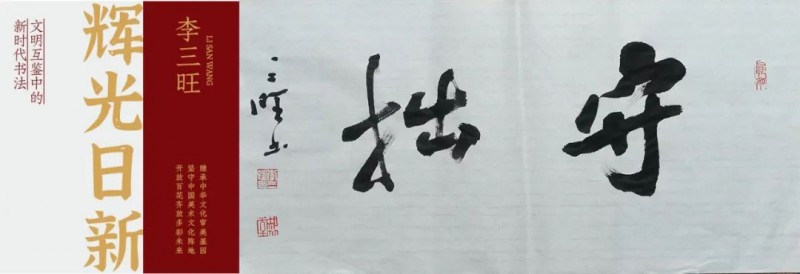 辉光日新
文明互鉴中的
新时代书法
李三旺
LI SAN WANG
继承中华文化审美基因
坚守中国美术文化阵地
开放百花齐放多彩未来
守拙
三旺书